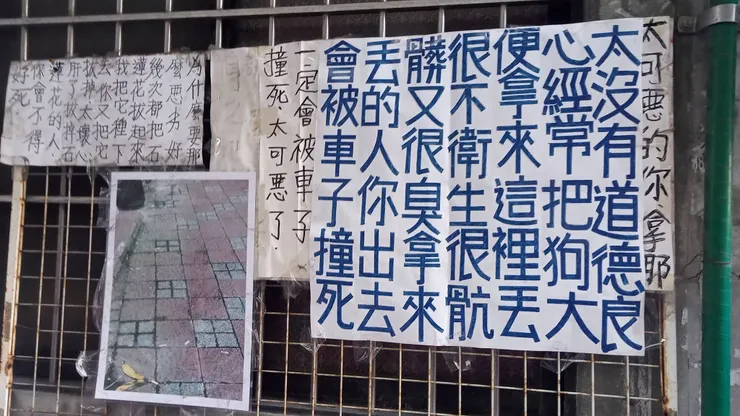 太可惡的你.拿耶
太沒有道德良
心經常把狗大
便拿來這裡丟
很不衛生很骯
髒又很臭拿來
丟的人你出去
會被車子撞死
一定會被車子
撞死太可惡了.
為什麼要那
麼惡劣好
幾次都把石
蓮花拔起來
我把它種下
去你又把它
拔掉太壞心
肝了拔掉石
蓮花的人
你會不得
好死.